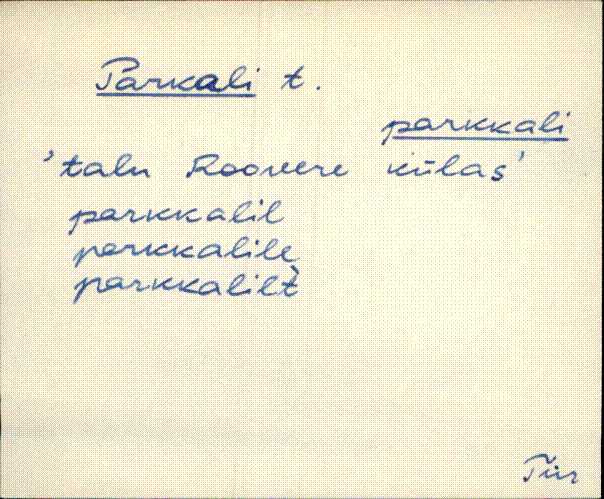 Parkali t.
parkkali
'talu Roovere külas'
parkkalil
parkkalile
parkkalilt̀
Tür